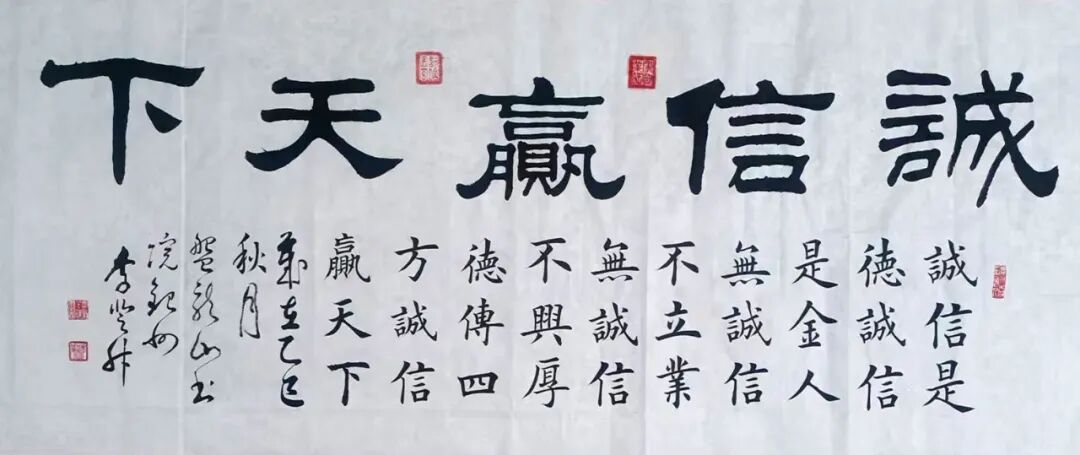 誠信贏天下
誠信是
德誠信
是金人
無誠信
不立業
無誠信
不興厚
德傳四
方誠信
贏天下
歲在乙巳
秋月
龍山書
院